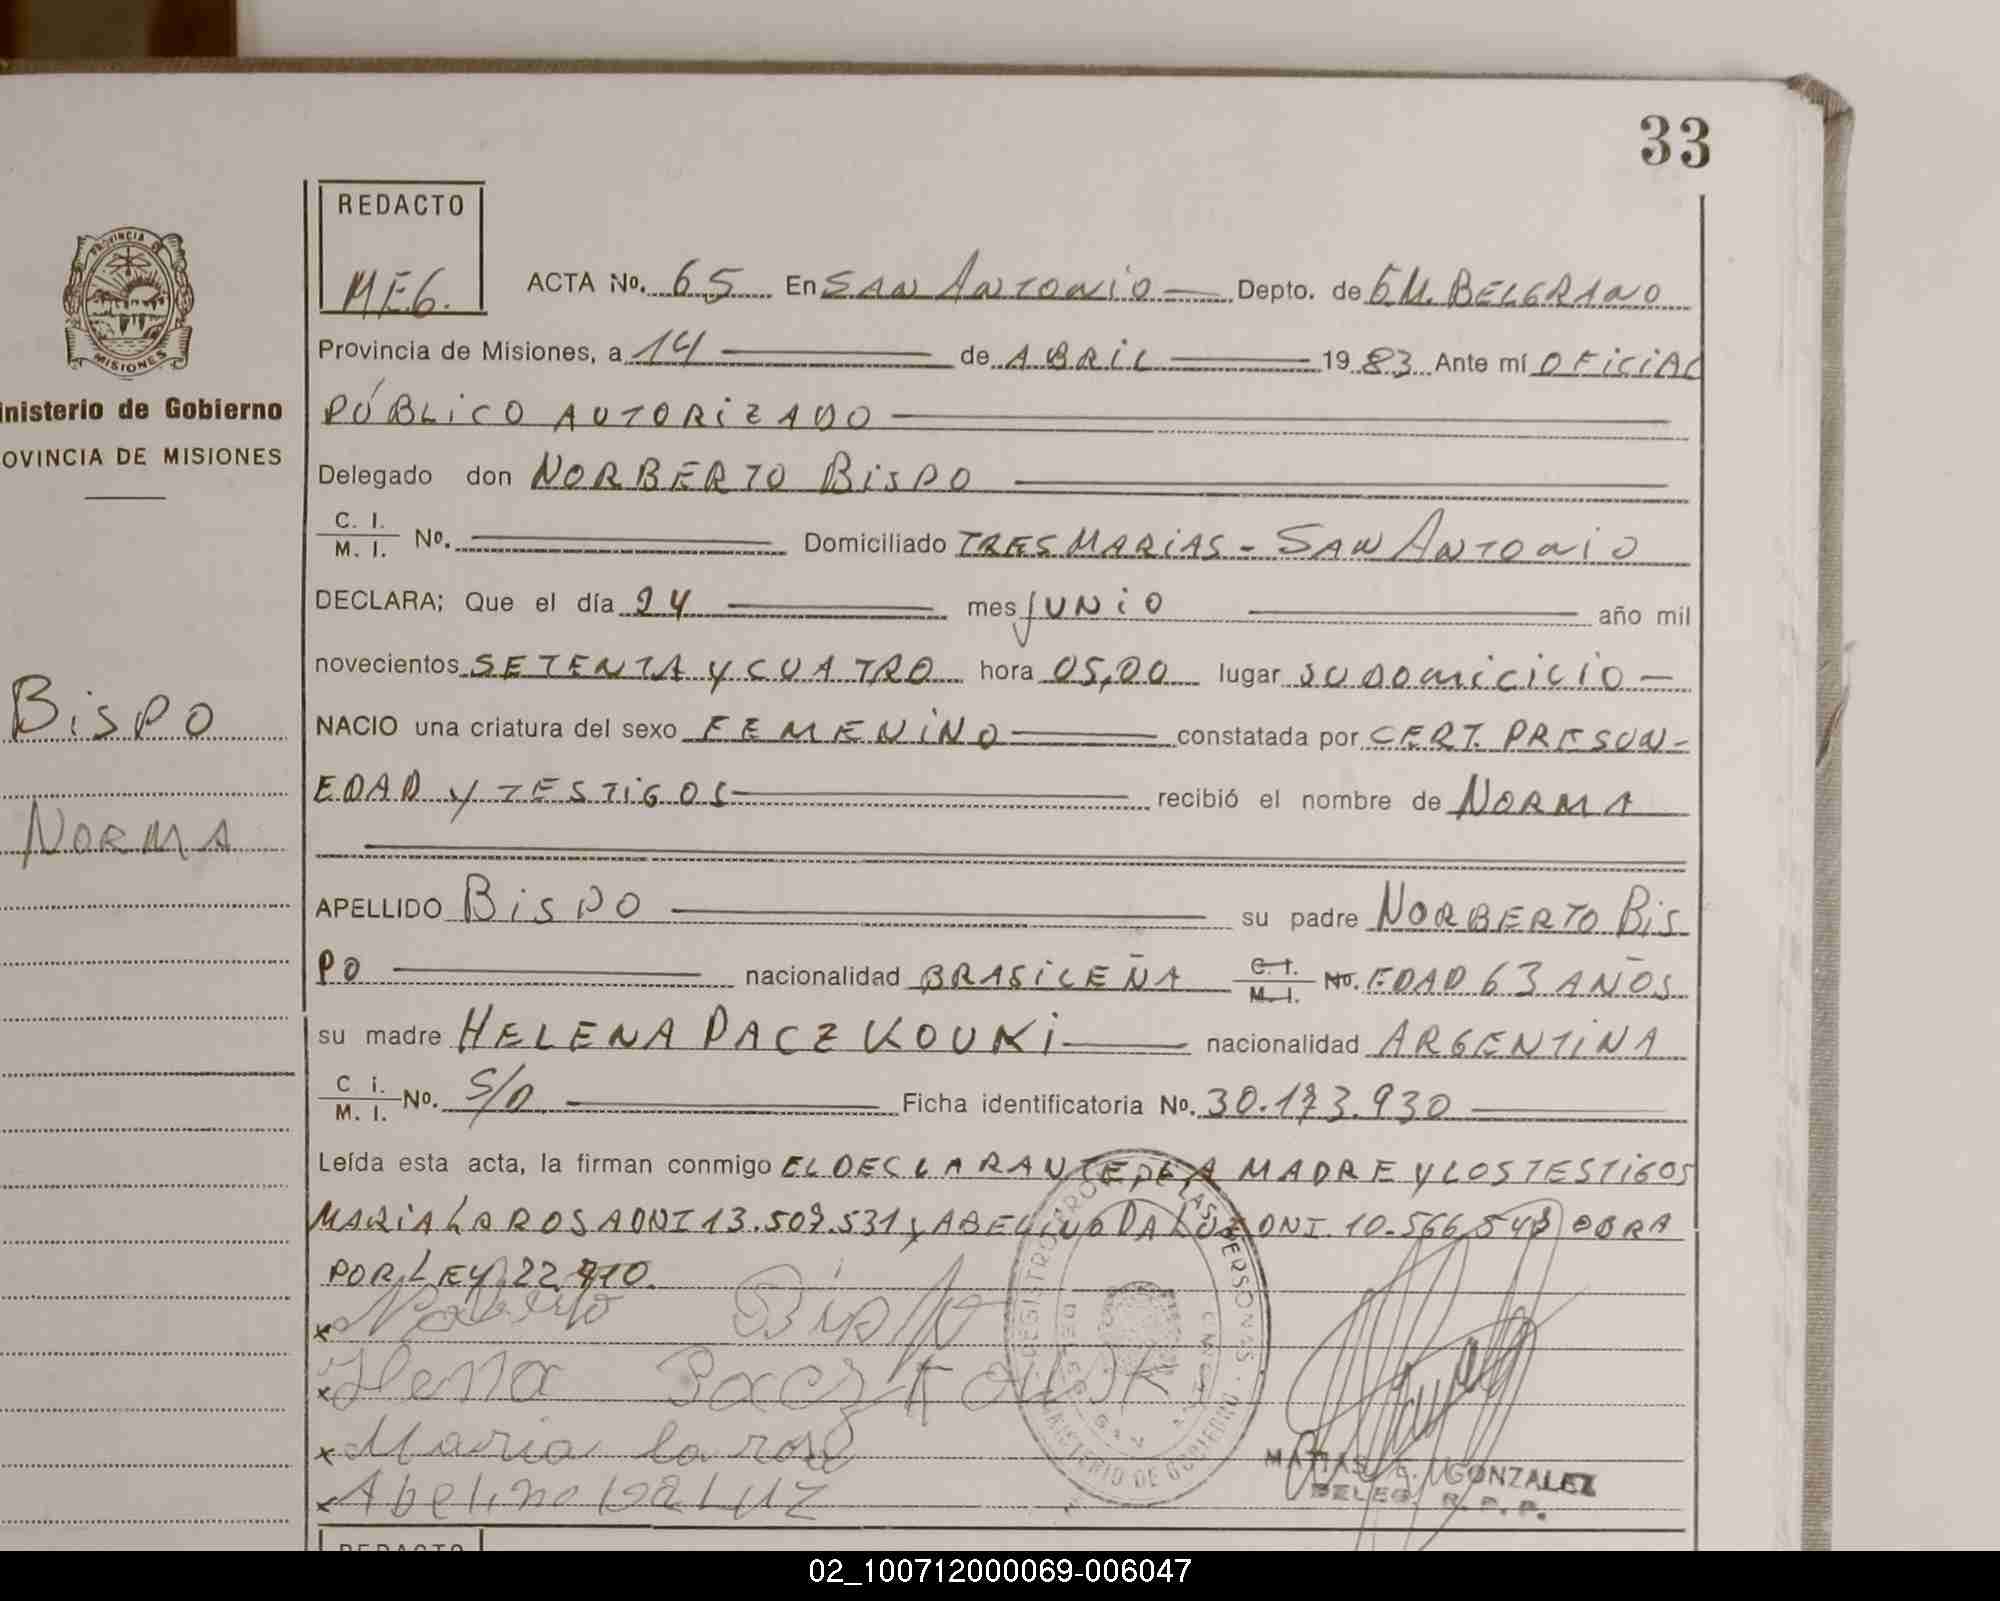 33
REDACTO
MEG.
ACTA No. 65 En SAN ANTONIO Depto. de G.M. BELGRANO
Provincia de Misiones, a 14 de ABRIL 1983 Ante mí OFICIAL
PÚBLICO AUTORIZADO
Delegado don NORBERTO BISPO
C. I.
M. I. No. Domiciliado TRES MARIAS - SAN ANTONIO
DECLARA; Que el día 24 mes JUNIO año mil
novecientos SETENTA Y CUATRO hora 05,00 lugar SU DOMICILIO
NACIO una criatura del sexo FEMENINO constatada por CERT. PRESUN-
EDAD Y TESTIGOS recibió el nombre de NORMA
APELLIDO BISPO su padre NORBERTO BIS
PO nacionalidad BRASILEÑA C. I. M. I. No. EDAD 63 AÑOS
su madre HELENA PACZKOUKI nacionalidad ARGENTINA
C i.
M. I. No. S/D Ficha identificatoria No. 30.173.930
Leída esta acta, la firman conmigo EL DECLARANTE DE LA MADRE Y LOS TESTIGOS
MARIA LA ROSA DNI 13.507.531 y ABELINO DA LUZ DNI. 10.566.548 OBRA
POR LEY 22.410.
x Norberto Bispo
x Helena
x Maria la rosa
x Abelino Da LUZ
REGISTRO PROV. DE LAS PERSONAS
MINISTERIO DE GOBIERNO
MATIAS E. GONZALEZ
DELEG. R. P. P.
REDACTO
PROVINCIA DE
MISIONES
inisterio de Gobierno
OVINCIA DE MISIONES
BISPO
NORMA
02_100712000069-006047